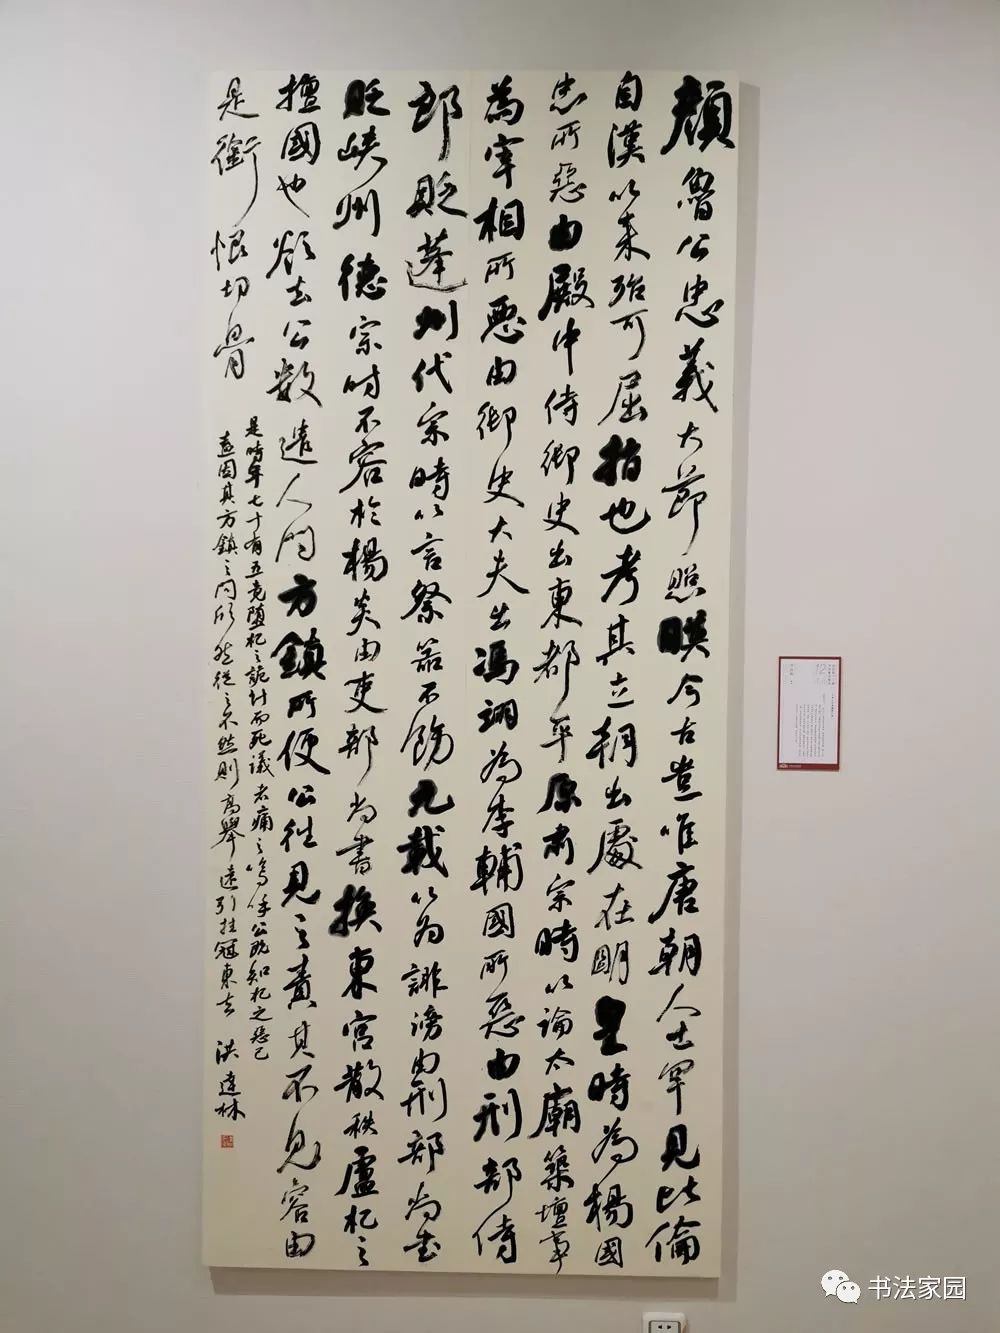 顏魯公忠義大節照暎今古豈唯唐朝人士罕見比倫
自漢以來殆可屈指也考其立朝出處在明皇時為楊國
忠所惡由殿中侍御史出東都平原肅宗時以論太廟築壇事
為宰相所惡由御史大夫出馮翊為李輔國所惡由刑部侍
郎貶蓬州代宗時以言祭器不飭元載以為誹謗由刑部尚書
貶峽州德宗時不容於楊炎由吏部尚書換東宮散秩盧杞之
擅國也欲去公數遣人問方鎮所便公往見之責其不見容由
是銜恨切骨
是時年七十有五竟墮杞之詭計而死議者痛之嗚呼公既知杞之惡己
盍因其方鎮之問欣然從之不然則高舉遠引挂冠東去
洪達林
书法家园